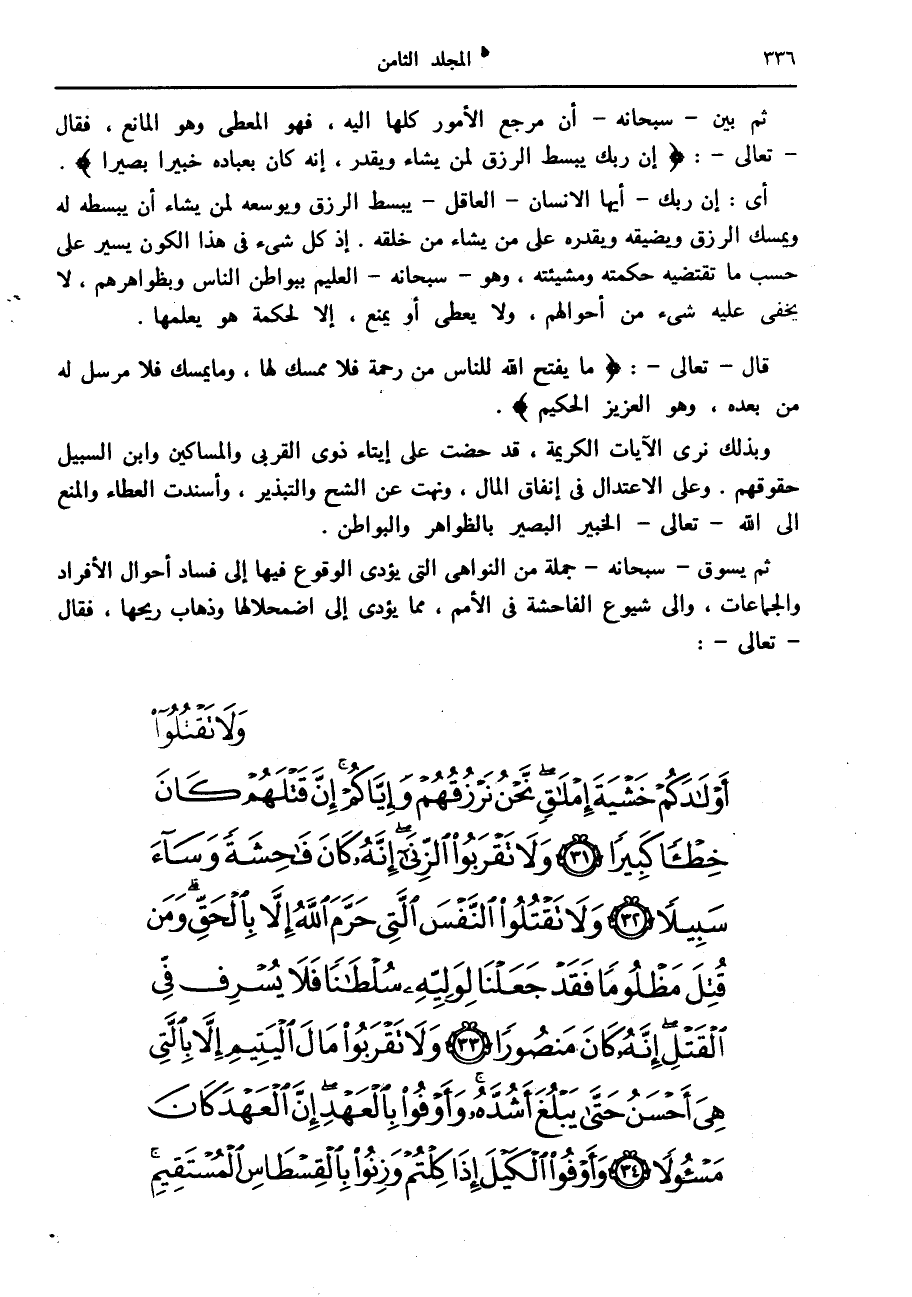 ٣٣٦
المجلد الثامن
ثم بين – سبحانه – أن مرجع الأمور كلها اليه ، فهو المعطى وهو المانع ، فقال
– تعالى – : ﴿ إن ربك يبسط الرزق لمن يشاء ويقدر ، إنه كان بعباده خبيرا بصيرا ﴾ .
أى : إن ربك – أيها الانسان – العاقل – يبسط الرزق ويوسعه لمن يشاء أن يبسطه له
ويمسك الرزق ويضيقه ويقدره على من يشاء من خلقه . إذ كل شىء فى هذا الكون يسير على
حسب ما تقتضيه حكمته ومشيئته ، وهو – سبحانه – العليم ببواطن الناس وبظواهرهم ، لا
يخفى عليه شىء من أحوالهم ، ولا يعطى أو يمنع ، إلا لحكمة هو يعلمها .
قال – تعالى – : ﴿ ما يفتح الله للناس من رحمة فلا ممسك لها ، ومايمسك فلا مرسل له
من بعده ، وهو العزيز الحكيم ﴾ .
وبذلك نرى الآيات الكريمة ، قد حضت على إيتاء ذوى القربى والمساكين وابن السبيل
حقوقهم . وعلى الاعتدال فى إنفاق المال ، ونهت عن الشح والتبذير ، وأسندت العطاء والمنع
الى الله – تعالى – الخبير البصير بالظواهر والبواطن .
ثم يسوق – سبحانه – جملة من النواهى التى يؤدى الوقوع فيها إلى فساد أحوال الأفراد
والجماعات ، والى شيوع الفاحشة فى الأمم ، مما يؤدى إلى اضمحلالها وذهاب ريحها ، فقال
– تعالى – :
وَلَا تَقْتُلُوٓا۟
أَوْلَٰدَكُمْ خَشْيَةَ إِمْلَٰقٍۖ نَّحْنُ نَرْزُقُهُمْ وَإِيَّاكُمْۚ إِنَّ قَتْلَهُمْ كَانَ
خِطْـًٔا كَبِيرًا ٣١ وَلَا تَقْرَبُوا۟ ٱلزِّنَىٰٓۖ إِنَّهُۥ كَانَ فَٰحِشَةً وَسَآءَ
سَبِيلًا ٣٢ وَلَا تَقْتُلُوا۟ ٱلنَّفْسَ ٱلَّتِى حَرَّمَ ٱللَّهُ إِلَّا بِٱلْحَقِّۗ وَمَن
قُتِلَ مَظْلُومًا فَقَدْ جَعَلْنَا لِوَلِيِّهِۦ سُلْطَٰنًا فَلَا يُسْرِف فِّى
ٱلْقَتْلِۖ إِنَّهُۥ كَانَ مَنصُورًا ٣٣ وَلَا تَقْرَبُوا۟ مَالَ ٱلْيَتِيمِ إِلَّا بِٱلَّتِى
هِىَ أَحْسَنُ حَتَّىٰ يَبْلُغَ أَشُدَّهُۥۚ وَأَوْفُوا۟ بِٱلْعَهْدِۖ إِنَّ ٱلْعَهْدَ كَانَ
مَسْـُٔولًا ٣٤ وَأَوْفُوا۟ ٱلْكَيْلَ إِذَا كِلْتُمْ وَزِنُوا۟ بِٱلْقِسْطَاسِ ٱلْمُسْتَقِيمِۚ